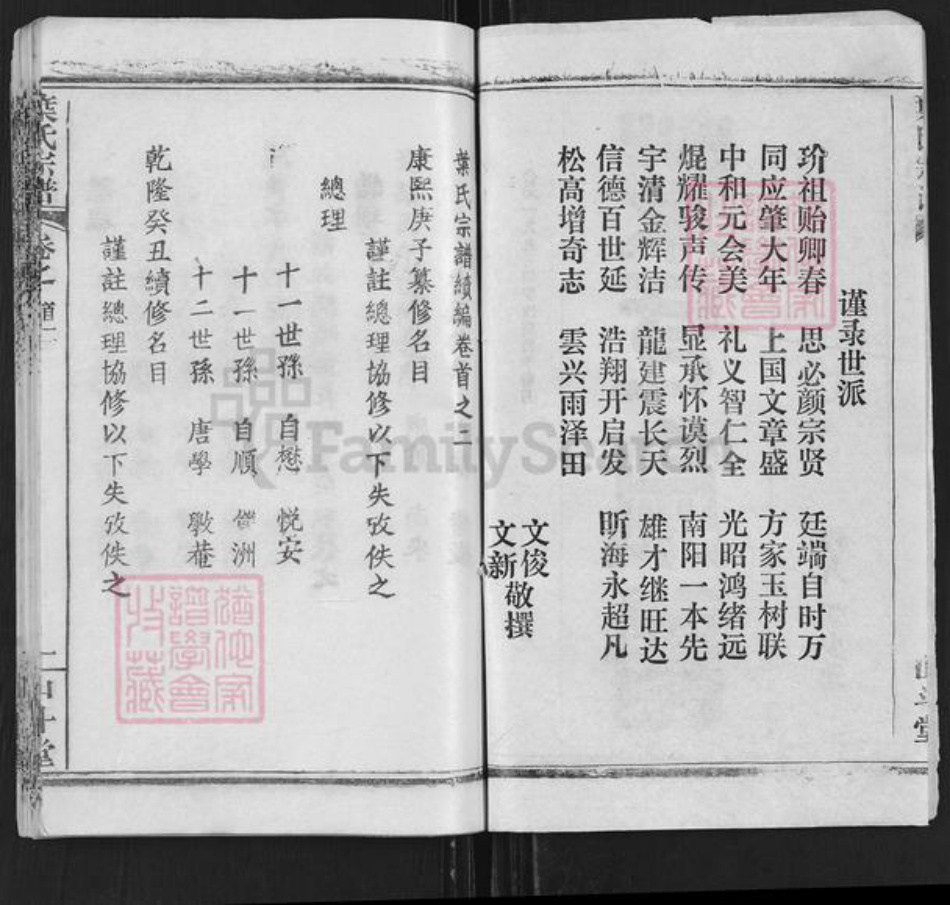 谨录世派
玠祖贻卿春 思必颜宗贤 廷端自时万
同应肇大年 上国文章盛 方家玉树联
中和元会美 礼义智仁全 光昭鸿绪远
焜耀骏声传 显承怀谟烈 南阳一本先
宇清金辉洁 龍建震长天 雄才继旺达
信德百世延 浩翔开启发 昕海永超凡
松高增奇志 雲兴雨泽田
文俊
文新
敬撰
葉氏宗譜續編卷首之二
康熙庚子纂修名目
謹註總理協修以下失攷佚之
總理
十一世孫 自懋 悦安
十一世孫 自順 洲
十二世孫 唐學 斅菴
乾隆癸丑續修名目
謹註總理協修以下失攷佚之
葉氏宗譜 卷之首二
譜學會
收藏
FamilySearch